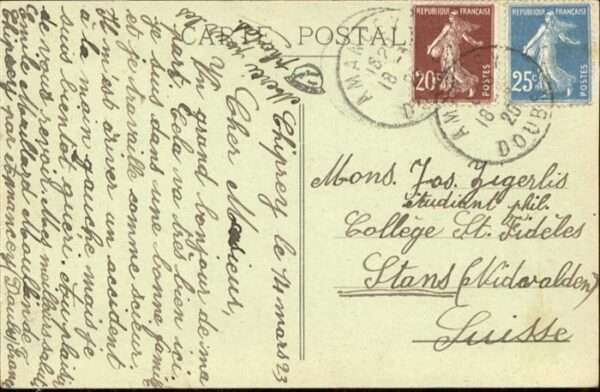 CARTE POSTALE
REPUBLIQUE FRANÇAISE
20c
POSTES
REPUBLIQUE FRANÇAISE
25c
POSTES
AMAN
18
DOUB
AMAN
18
23
DOUB
Mons. Jos. Zigerlis
étudiant phil.
Collège St. Fidèles
Stans (Nidwalden)
Suisse
Chiprey le 14 mars 23
Cher Monsieur,
Un grand bonjour de ma
part. Cela va très bien ici.
Je suis dans une bonne famille
et je travaille comme scieur.
Il m'est arriver un accident
a la main gauche mais je
suis bientot gueri. Au plaisir
de vous revoir. Mes meilheurs saluts
Emile Moullard Moullin de
Chiprey par Amancey (Doubs) France
Merci pour les